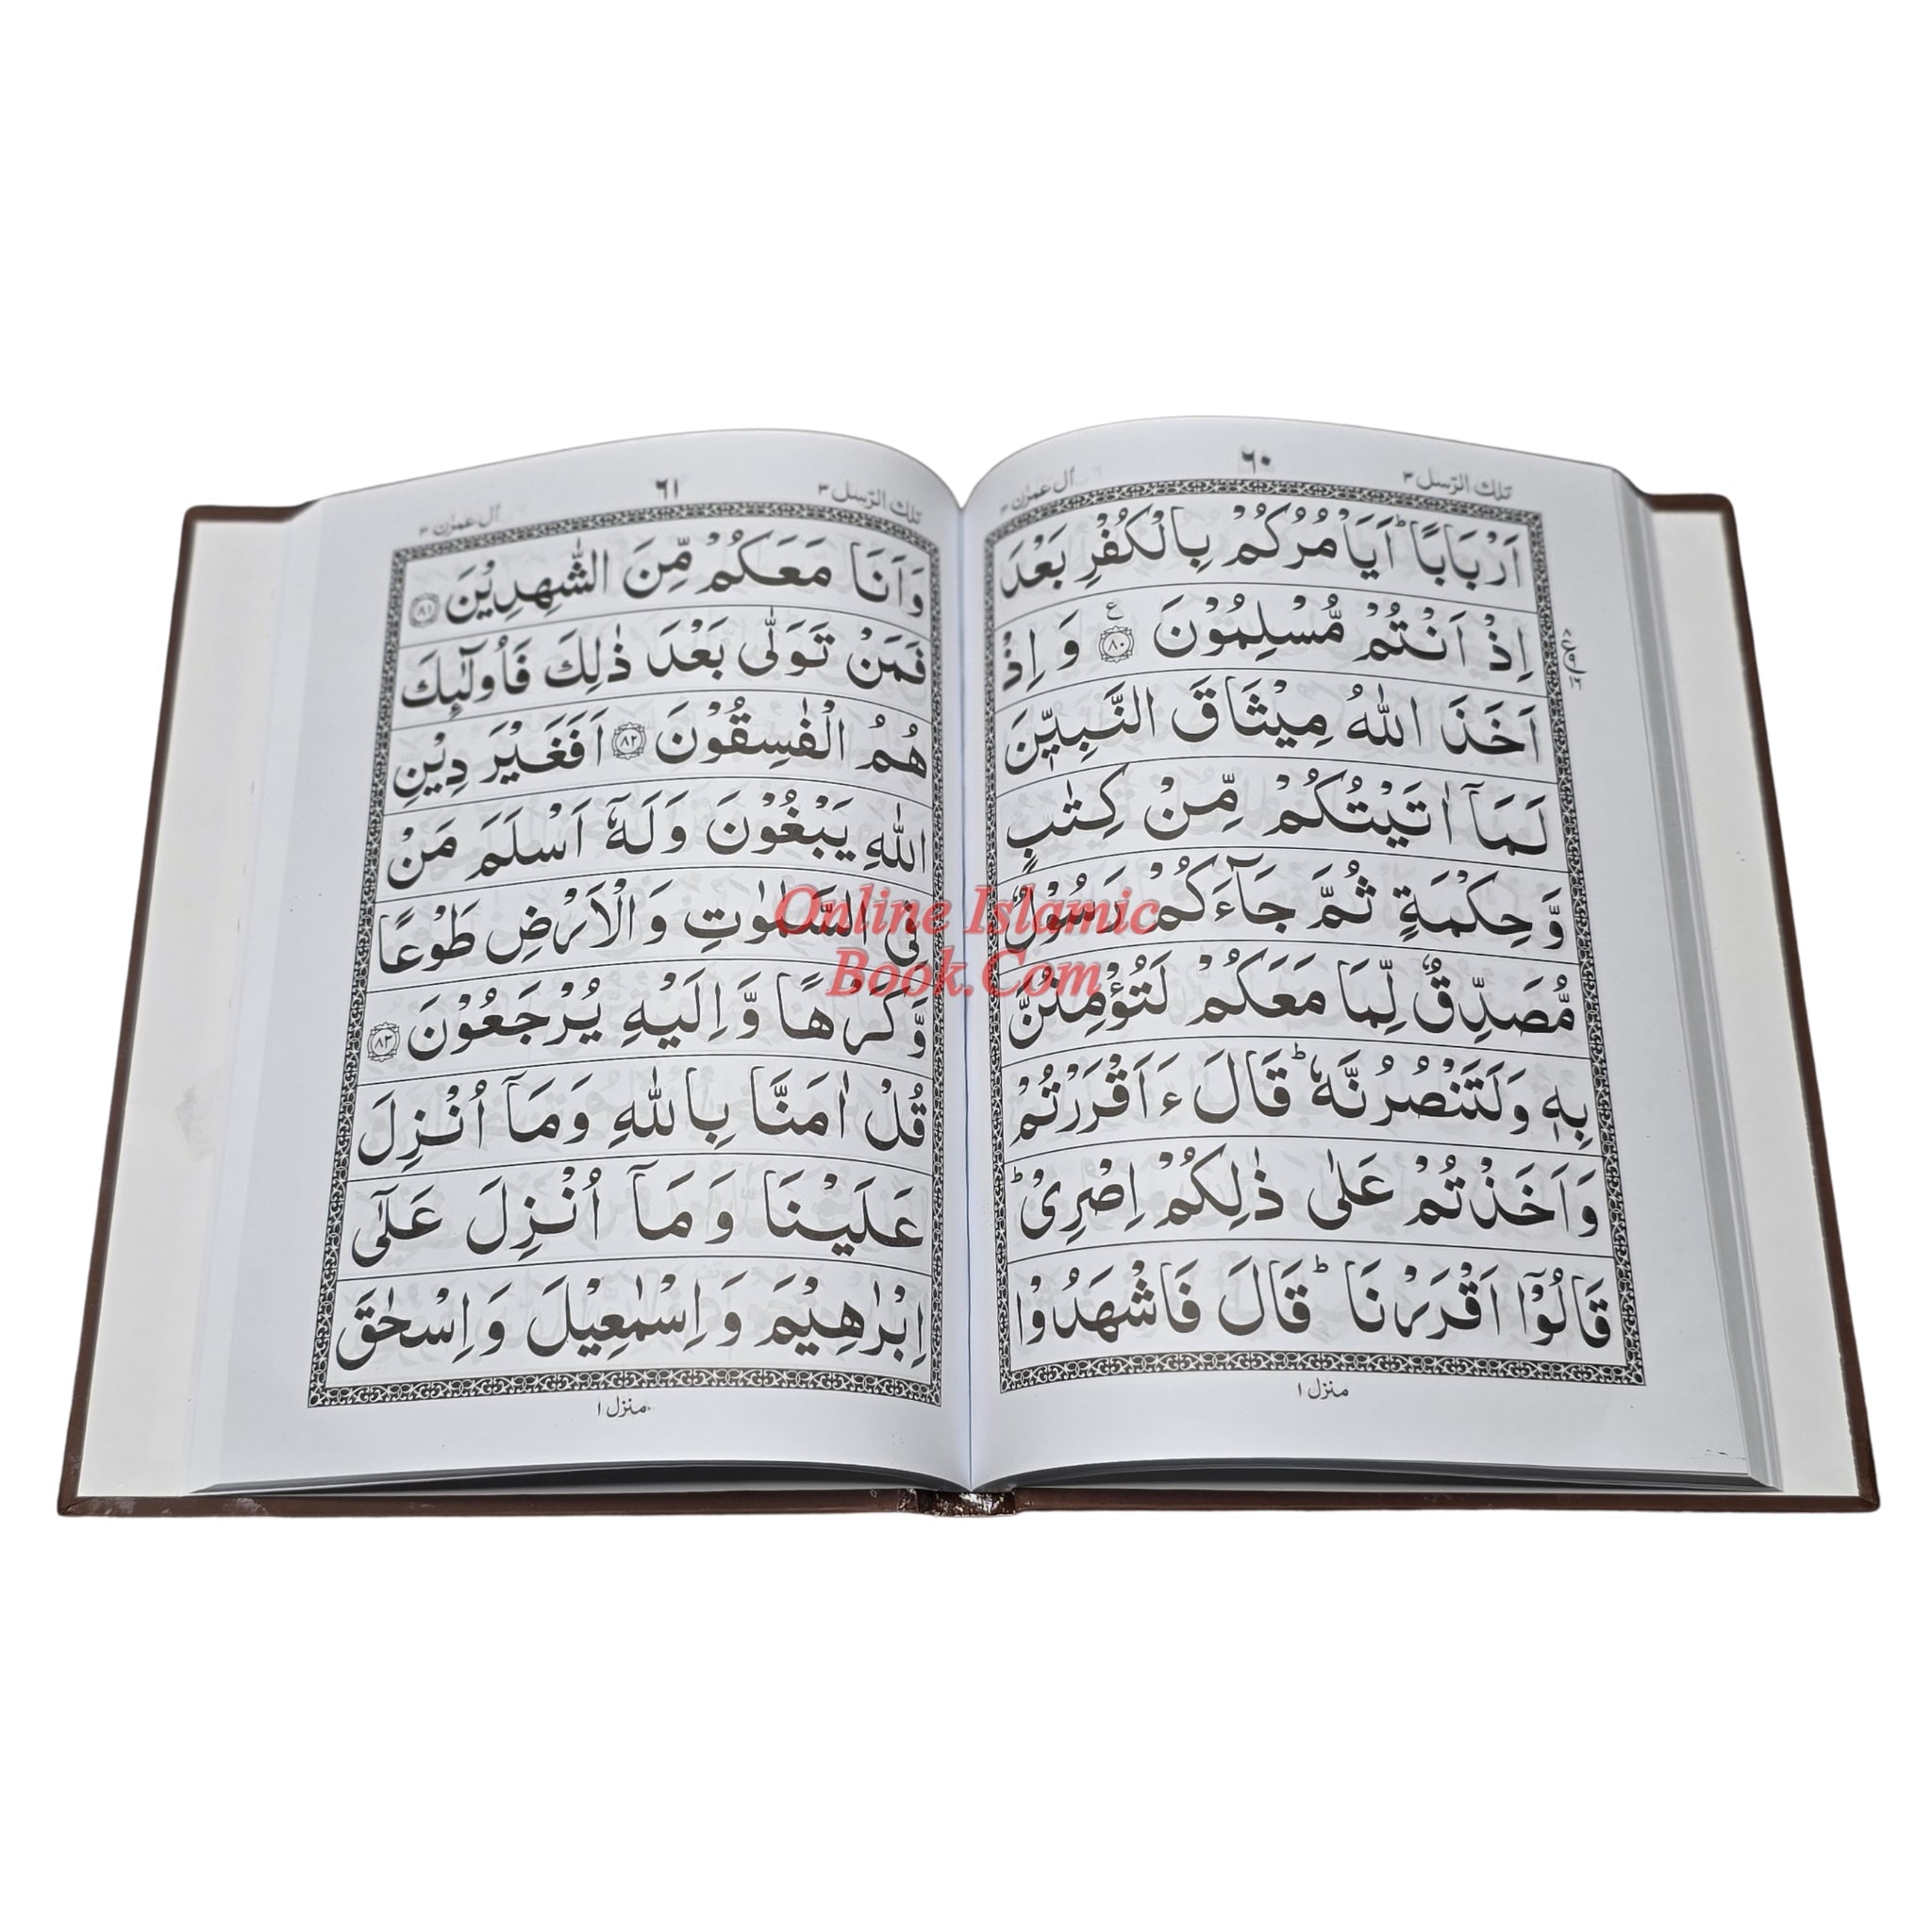 تلك الرسل ٣
٦٠
آل عمرٰن ٣
اَرْبَابًا ؕ اَيَاْمُرُكُمْ بِالْكُفْرِ بَعْدَ
اِذْ اَنْتُمْ مُّسْلِمُوْنَ ۝٨٠ ع وَ اِذْ
اَخَذَ اللّٰهُ مِيْثَاقَ النَّبِيّٖنَ
لَمَاۤ اٰتَيْتُكُمْ مِّنْ كِتٰبٍ
وَّحِكْمَةٍ ثُمَّ جَآءَكُمْ رَسُوْلٌ
مُّصَدِّقٌ لِّمَا مَعَكُمْ لَتُؤْمِنُنَّ
بِهٖ وَلَتَنْصُرُنَّهٗ ؕ قَالَ ءَاَقْرَرْتُمْ
وَاَخَذْتُمْ عَلٰى ذٰلِكُمْ اِصْرِيْ ؕ
قَالُوْۤا اَقْرَرْنَا ؕ قَالَ فَاشْهَدُوْا
منزل ١
تلك الرسل ٣
٦١
آل عمرٰن ٣
وَاَنَا مَعَكُمْ مِّنَ الشّٰهِدِيْنَ ۝٨١
فَمَنْ تَوَلّٰى بَعْدَ ذٰلِكَ فَاُولٰٓئِكَ
هُمُ الْفٰسِقُوْنَ ۝٨٢ اَفَغَيْرَ دِيْنِ
اللّٰهِ يَبْغُوْنَ وَلَهٗۤ اَسْلَمَ مَنْ
فِي السَّمٰوٰتِ وَالْاَرْضِ طَوْعًا
وَّكَرْهًا وَّاِلَيْهِ يُرْجَعُوْنَ ۝٨٣
قُلْ اٰمَنَّا بِاللّٰهِ وَمَاۤ اُنْزِلَ
عَلَيْنَا وَمَاۤ اُنْزِلَ عَلٰٓى
اِبْرٰهِيْمَ وَاِسْمٰعِيْلَ وَاِسْحٰقَ
منزل ١
Online Islamic
Book.Com